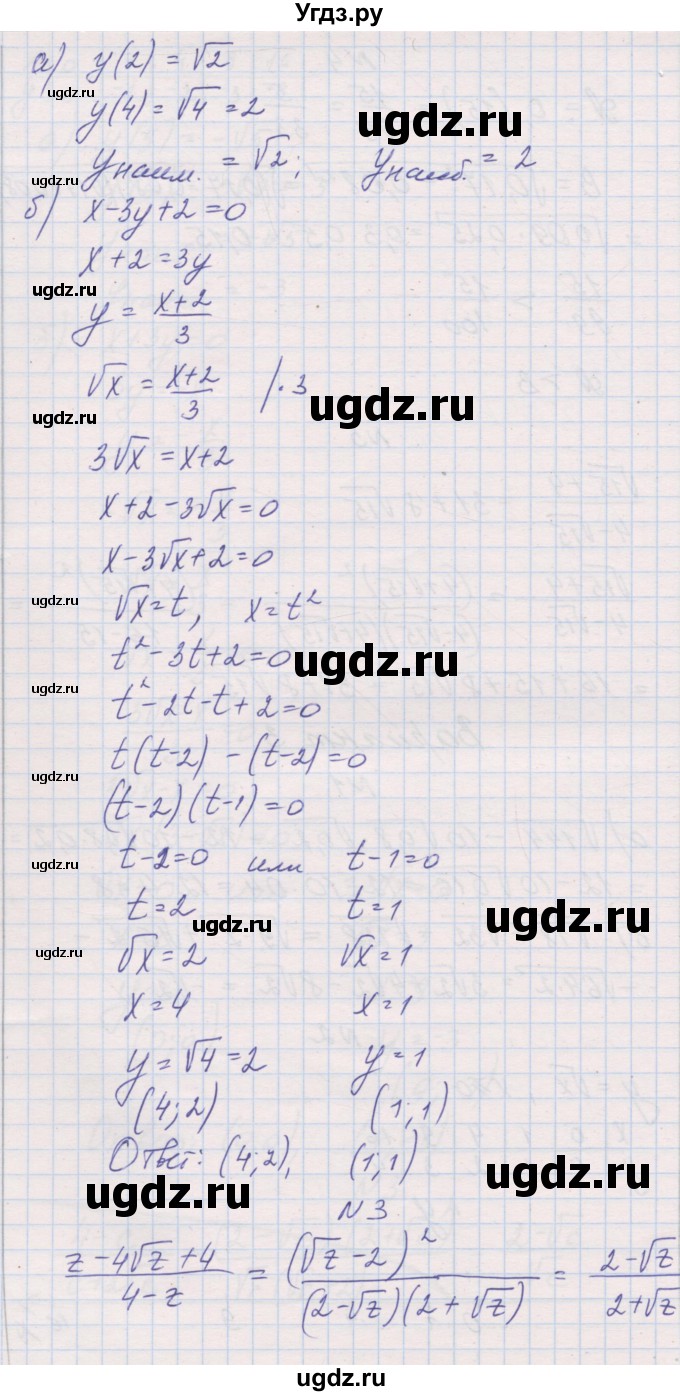 Угдз.ру
а) y(2) = √2
ugdz.ru
y(4) = √4 = 2
ugdz.ru
yнаим. = √2; yнаиб. = 2
ugdz.ru
б) x-3y+2=0
x+2=3y
ugdz.ru
y = (x+2)/3
√x = (x+2)/3 /·3
ugdz.ru
ugdz.ru
3√x = x+2
x+2-3√x=0
x-3√x+2=0
ugdz.ru
√x=t, x=t²
t²-3t+2=0
ugdz.ru
ugdz.ru
t²-2t-t+2=0
t(t-2)-(t-2)=0
ugdz.ru
(t-2)(t-1)=0
ugdz.ru
t-2=0 или t-1=0
t=2 t=1
ugdz.ru
ugdz.ru
ugdz.ru
√x=2 √x=1
x=4 x=1
y=√4=2 y=1
(4;2) (1;1)
Ответ: (4;2), (1;1)
ugdz.ru
ugdz.ru
N3
(z-4√z+4)/(4-z) = (√z-2)²/((2-√z)(2+√z)) = (2-√z)/(2+√z)
ugdz.ru
ugdz.ru